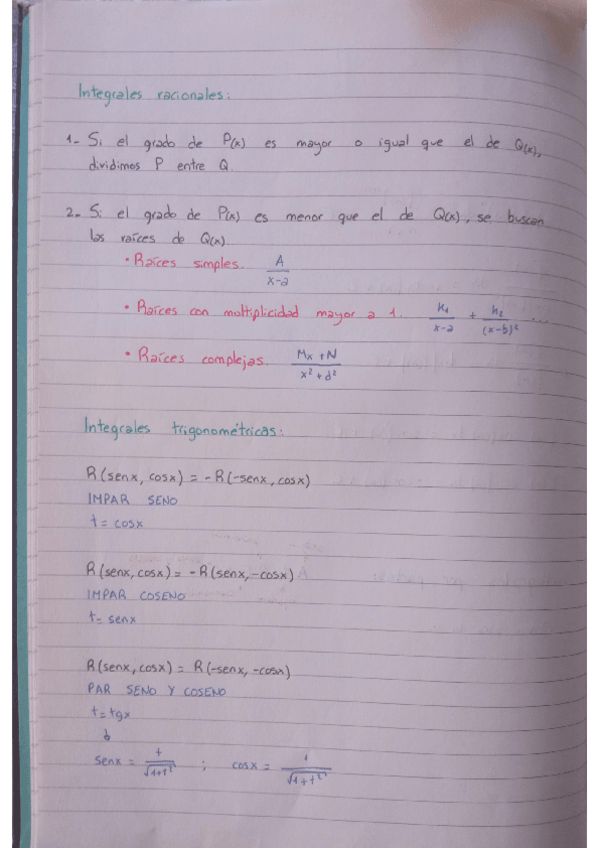 Integrales racionales:
1- Si el grado de P(x) es mayor o igual que el de Q(x),
dividimos P entre Q.
2- Si el grado de P(x) es menor que el de Q(x), se buscan
las raíces de Q(x)
• Raíces simples. A/(x-a)
• Raíces con multiplicidad mayor a 1. K1/(x-a) + K2/(x-b)² ...
• Raíces complejas. (Mx+N)/(x²+d²)
Integrales trigonométricas:
R(senx, cosx) = -R(-senx, cosx)
IMPAR SENO
t = cosx
R(senx, cosx) = -R(senx, -cosx)
IMPAR COSENO
t = senx
R(senx, cosx) = R(-senx, -cosx)
PAR SENO Y COSENO
t = tgx
senx = t/√(1+t²) ; cosx = 1/√(1+t²)